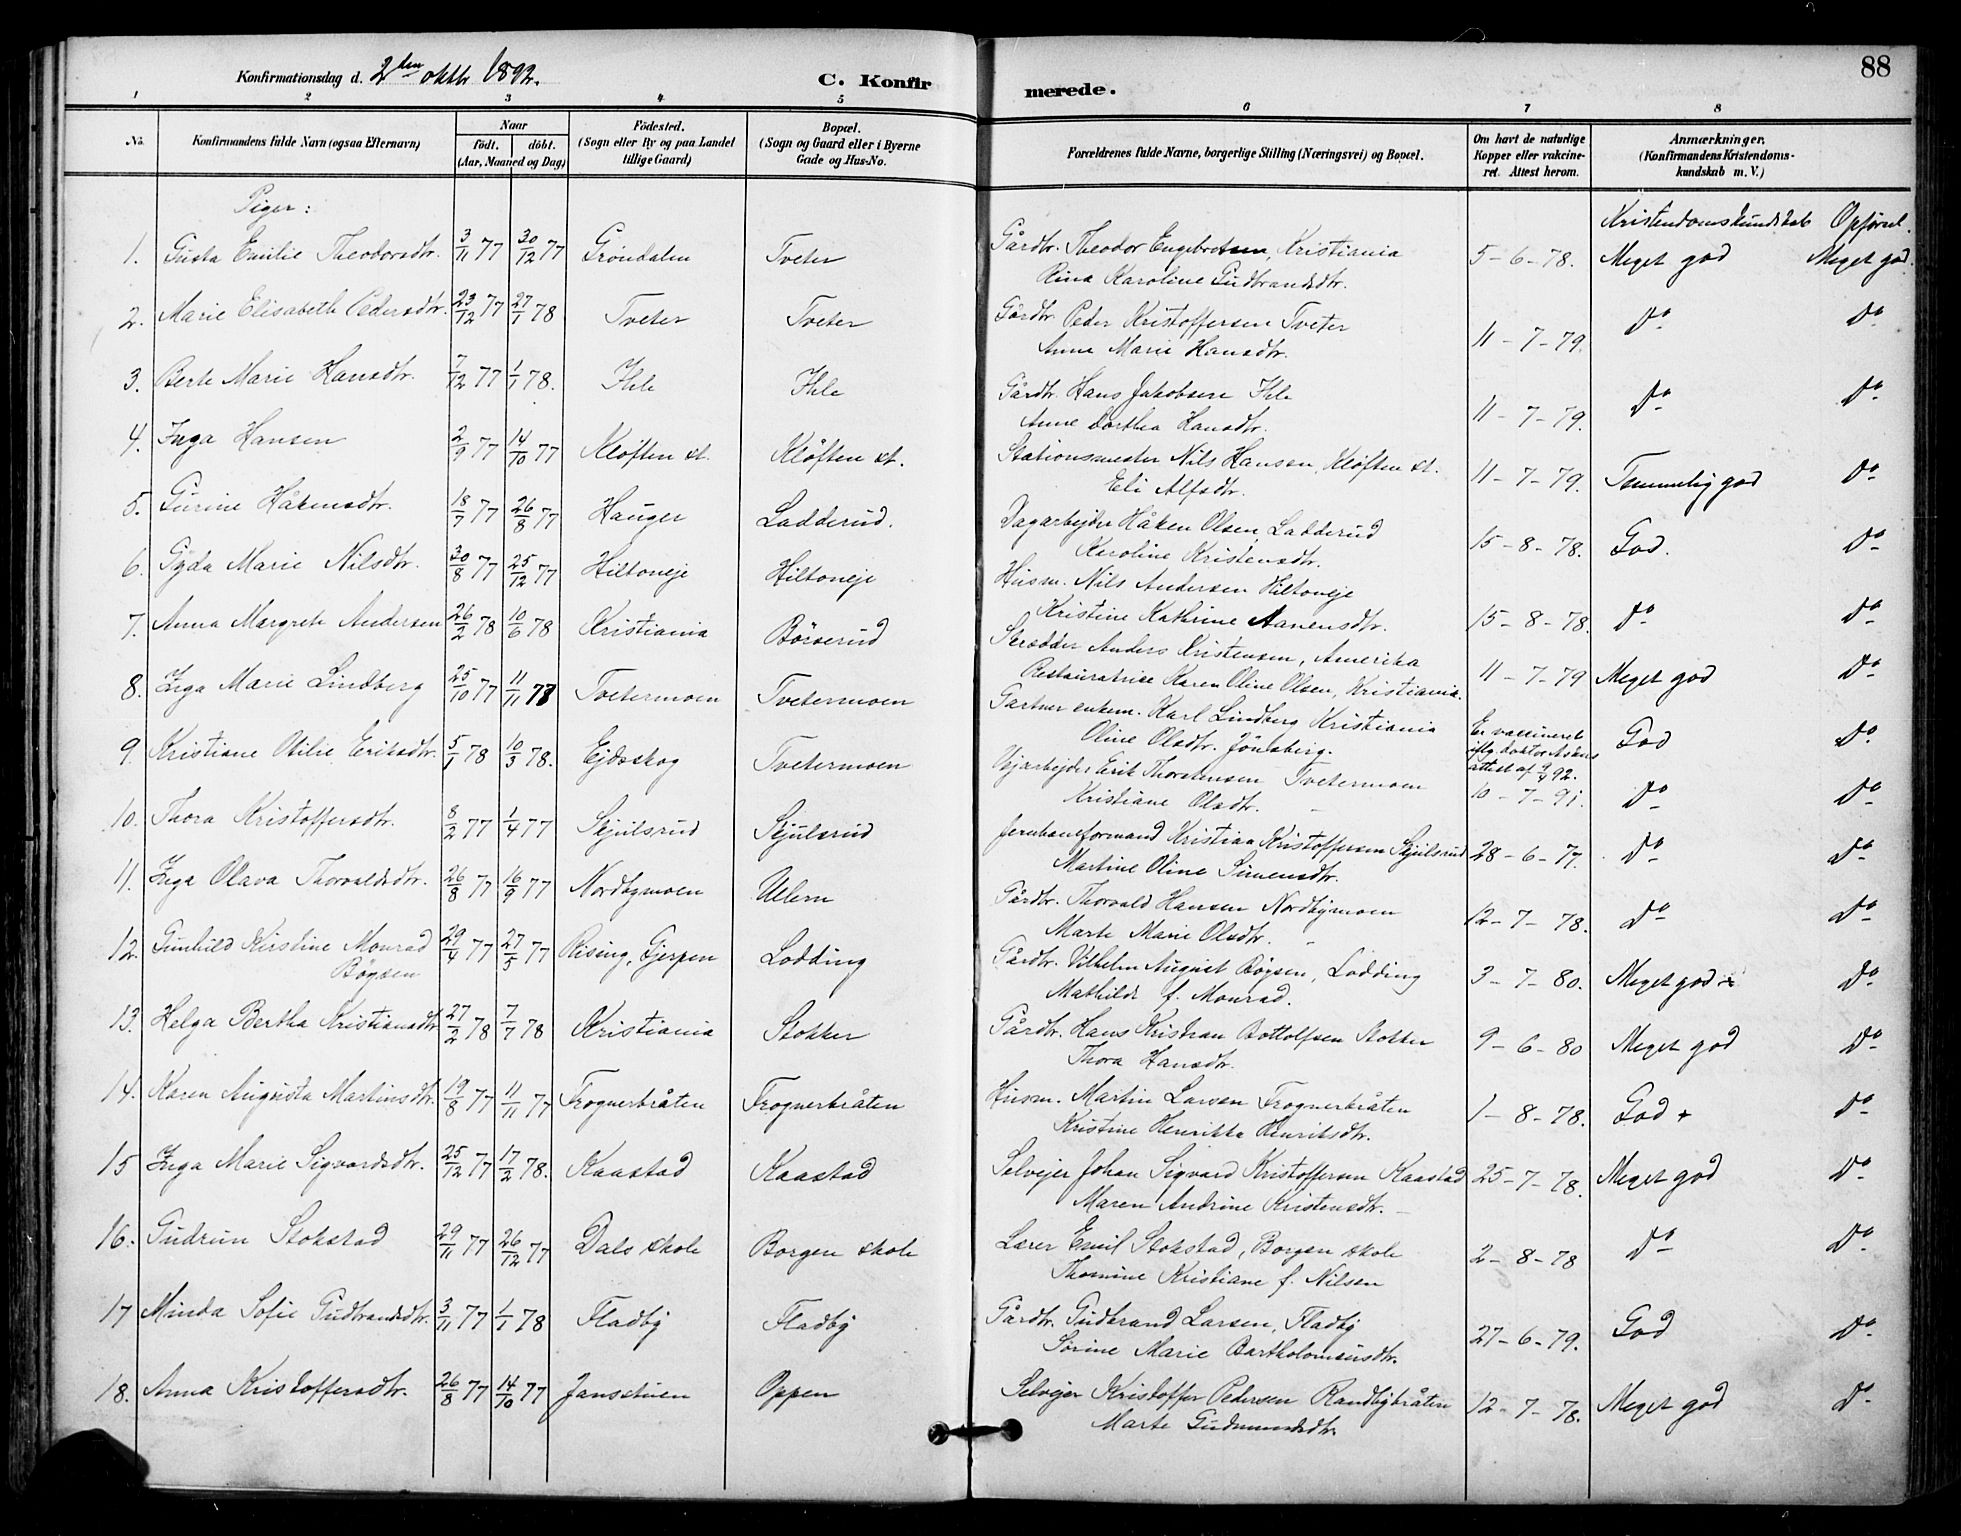 88
Konfirmationsdag d. 2den oktbr 1892.
C. Konfirmerede.
1 2 3 4 5 6 7 8
No.
Konfirmandens fulde Navn (ogsaa Efternavn)
Naar
födt. döbt.
(Aar, Maaned og Dag)
Födested.
(Sogn eller By og paa Landet
tillige Gaard)
Bopæl.
(Sogn og Gaard eller i Byerne
Gade og Hus-No.
Forældrenes fulde Navne, borgerlige Stilling (Næringsvei) og Bopæl.
Om havt de naturlige
Kopper eller vakcine-
ret. Attest herom.
Anmærkninger.
(Konfirmandens Kristendoms-
kundskab m. V.)
Piger:
Kristendomskundskab Opførsel.
1. Gusta Emilie Theodorsdtr. 3/11 77 30/12 77 Grøndalen Tveter Gårdbr. Theodor Engebretsen, Kristiania 5-6-78. Meget god Meget god.
Rina Karoline Gudbrandsdtr.
2. Marie Elisabeth Pedersdtr. 23/12 77 27/1 78 Tveter Tveter Gårdbr. Peder Kristoffersen Tveter 11-7-79. Do Do
Anne Marie Hansdtr.
3. Berte Marie Hansdtr. 7/12 77 1/1 78. Ihle Ihle Gårdbr. Hans Jakobsen Ihle 11-7-79. Do Do
Anne Dorthea Hansdtr.
4. Inga Hansen 2/9 77 14/10 77 Kløften st. Kløften st. Stationsmester Nils Hansen, Kløften st. 11-7-79. Temmelig god Do
Eli Alfsdtr.
5. Gurine Håkensdtr. 18/7 77 26/8 77 Hauger Ladderud. Dagarbejder Håken Olsen, Ladderud 15-8-78. God. Do
Karoline Kristensdtr.
6. Gyda Marie Nilsdtr. 30/8 77 25/12 77 Hiltoneje Hiltoneje Husm. Nils Andersen Hiltoneje 15-8-78. Do Do
Kristine Kathrine Aanensdtr.
7. Anna Margrete Andersen 26/2 78 10/6 78 Kristiania Børserud Skrædder Anders Kristensen, Amerika 11-7-79 Meget god Do
Restauratrice Karen Oline Olsen, Kristiania.
8. Inga Marie Lindberg 25/10 77 11/11 77 Tvetermoen Tvetermoen Gartner enkem. Karl Lindberg Kristiania Er vaccineret God Do
Oline Olsdtr. Jönsberg. iflg. doktor
attest af 92.
9. Kristiane Otilie Eriksdtr. 5/1 78 10/3 78. Ejdsskog Tvetermoen Vejarbejder Erik Thorstensen Tvetermoen 10-7-91. Do Do
Kristiane Olsdtr.
10. Thora Kristoffersdtr. 8/2 77 1/4 77 Skjulsrud Skjulsrud Jernbaneformand Kristian Kristoffersen Skjulsrud 28-6-77. Do Do
Martine Oline Simensdtr.
11. Inga Olava Thorvaldsdtr. 26/8 77 16/9 77 Nordbymoen Ulern Gårdbr. Thorvald Hansen Nordbymoen 12-7-78. Do Do
Marte Marie Olsdtr.
12. Gunhild Kirstine Monrad 29/4 77 27/5 77 Rising, Gjerpen Lodding Gårdbr. Vilhelm August Bøysen, Lodding 3-7-80. Meget god + Do
Bøysen Mathilde f. Monrad.
13. Helga Bertha Kristiansdtr 27/2 78 7/7 78 Kristiania Stokker Gårdbr. Hans Kristian Bottolfsen Stokker 9-6-80 Meget god Do
Thora Hansdtr.
14. Karen Augusta Martinsdtr. 19/8 77 11/11 77 Frognerbråten Frognerbråten Husm. Martin Larsen Frognerbråten 1-8-78. God + Do
Kristine Henrikka Henriksdtr.
15 Inga Marie Sigvardsdtr. 25/12 77 17/2 78. Kaastad Kaastad Selvejer Johan Sigvard Kristoffersen Kaastad 25-7-78. Meget god Do
Maren Andrine Kristensdtr.
16. Gudrun Stokstad 29/11 77 26/12 77 Dals skole Borgen skole Lærer Emil Stokstad, Borgen skole 2-8-78 Do Do
Thomine Kristiane f. Nilsen
17 Minda Sofie Gudbrandsdtr. 3/11 77 1/1 78 Fladby Fladby Gårdbr. Gudbrand Larsen, Fladby 27-6-79. God Do
Sørine Marie Bartholomeusdtr.
18. Anna Kristoffersdtr. 26/8 77 14/10 77 Jansstuen Oppen Selvejer Kristoffer Pedersen Randbybråten 12-7-78. Meget god Do
Marte Gudmundsdtr.